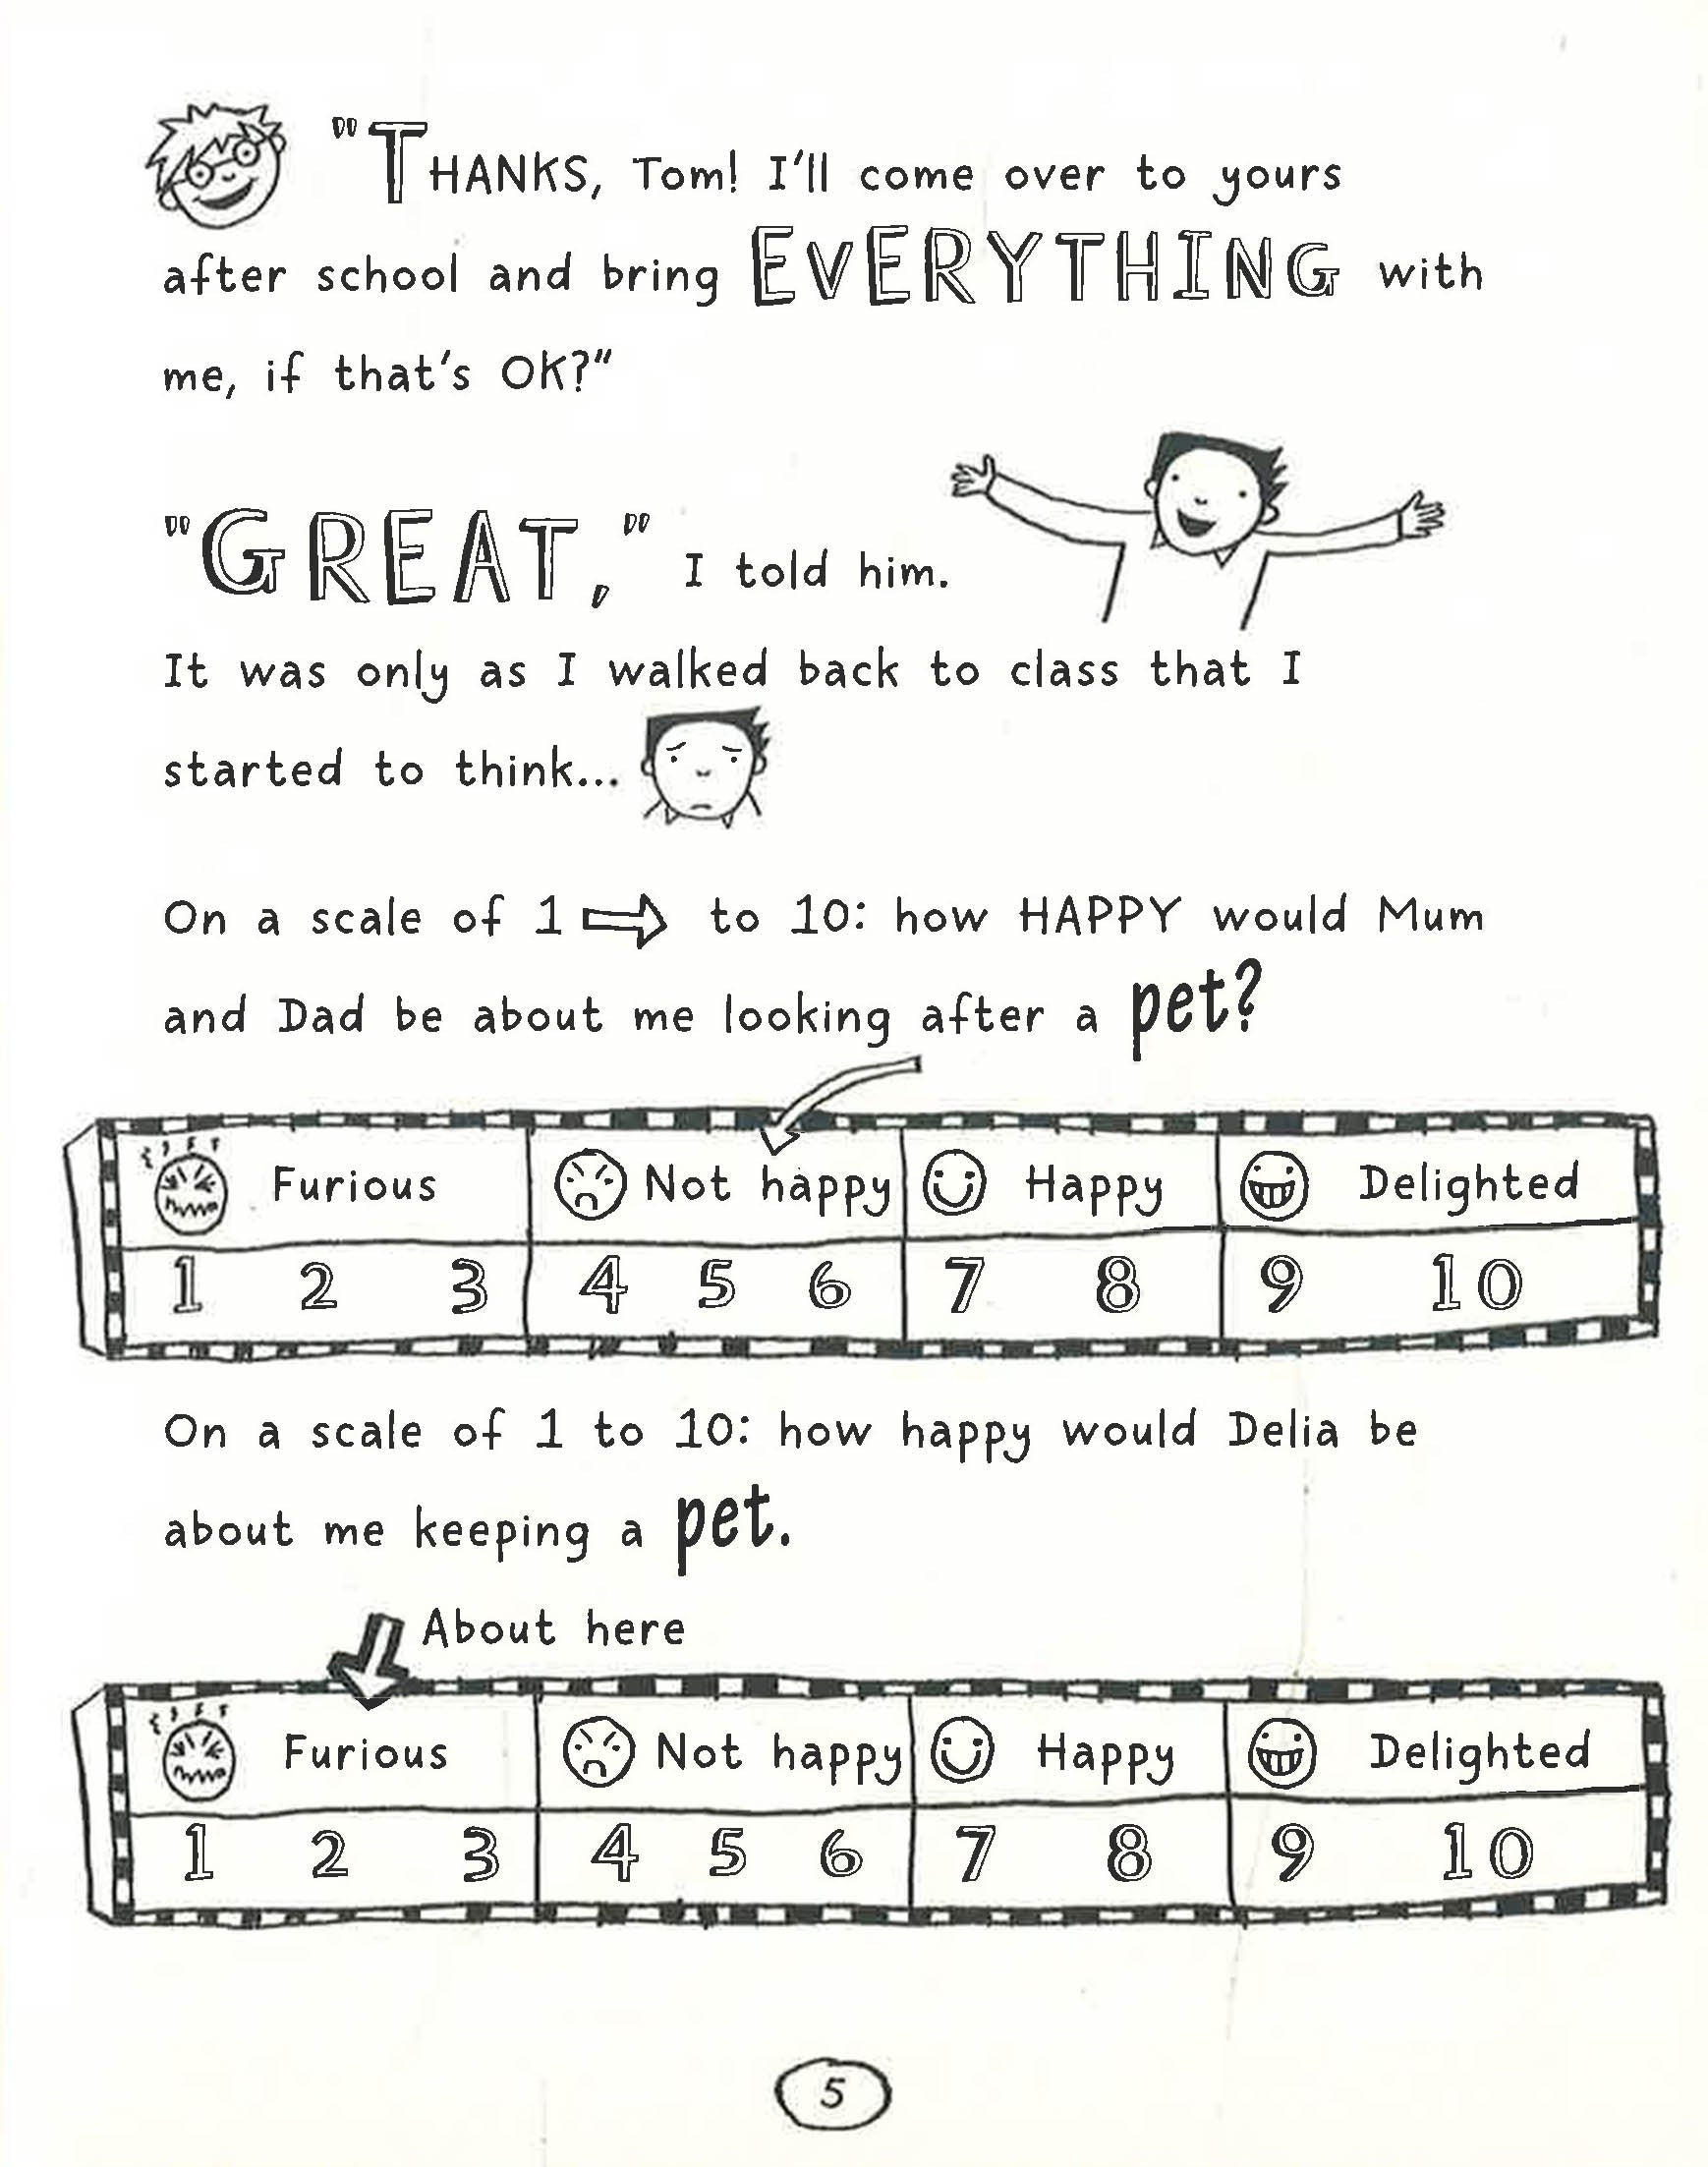 "THANKS, Tom! I'll come over to yours
after school and bring EVERYTHING with
me, if that's OK?"
"GREAT," I told him.
It was only as I walked back to class that I
started to think...
On a scale of 1 to 10: how HAPPY would Mum
and Dad be about me looking after a pet?
Furious Not happy Happy Delighted
1 2 3 4 5 6 7 8 9 10
On a scale of 1 to 10: how happy would Delia be
about me keeping a pet.
About here
Furious Not happy Happy Delighted
1 2 3 4 5 6 7 8 9 10
5